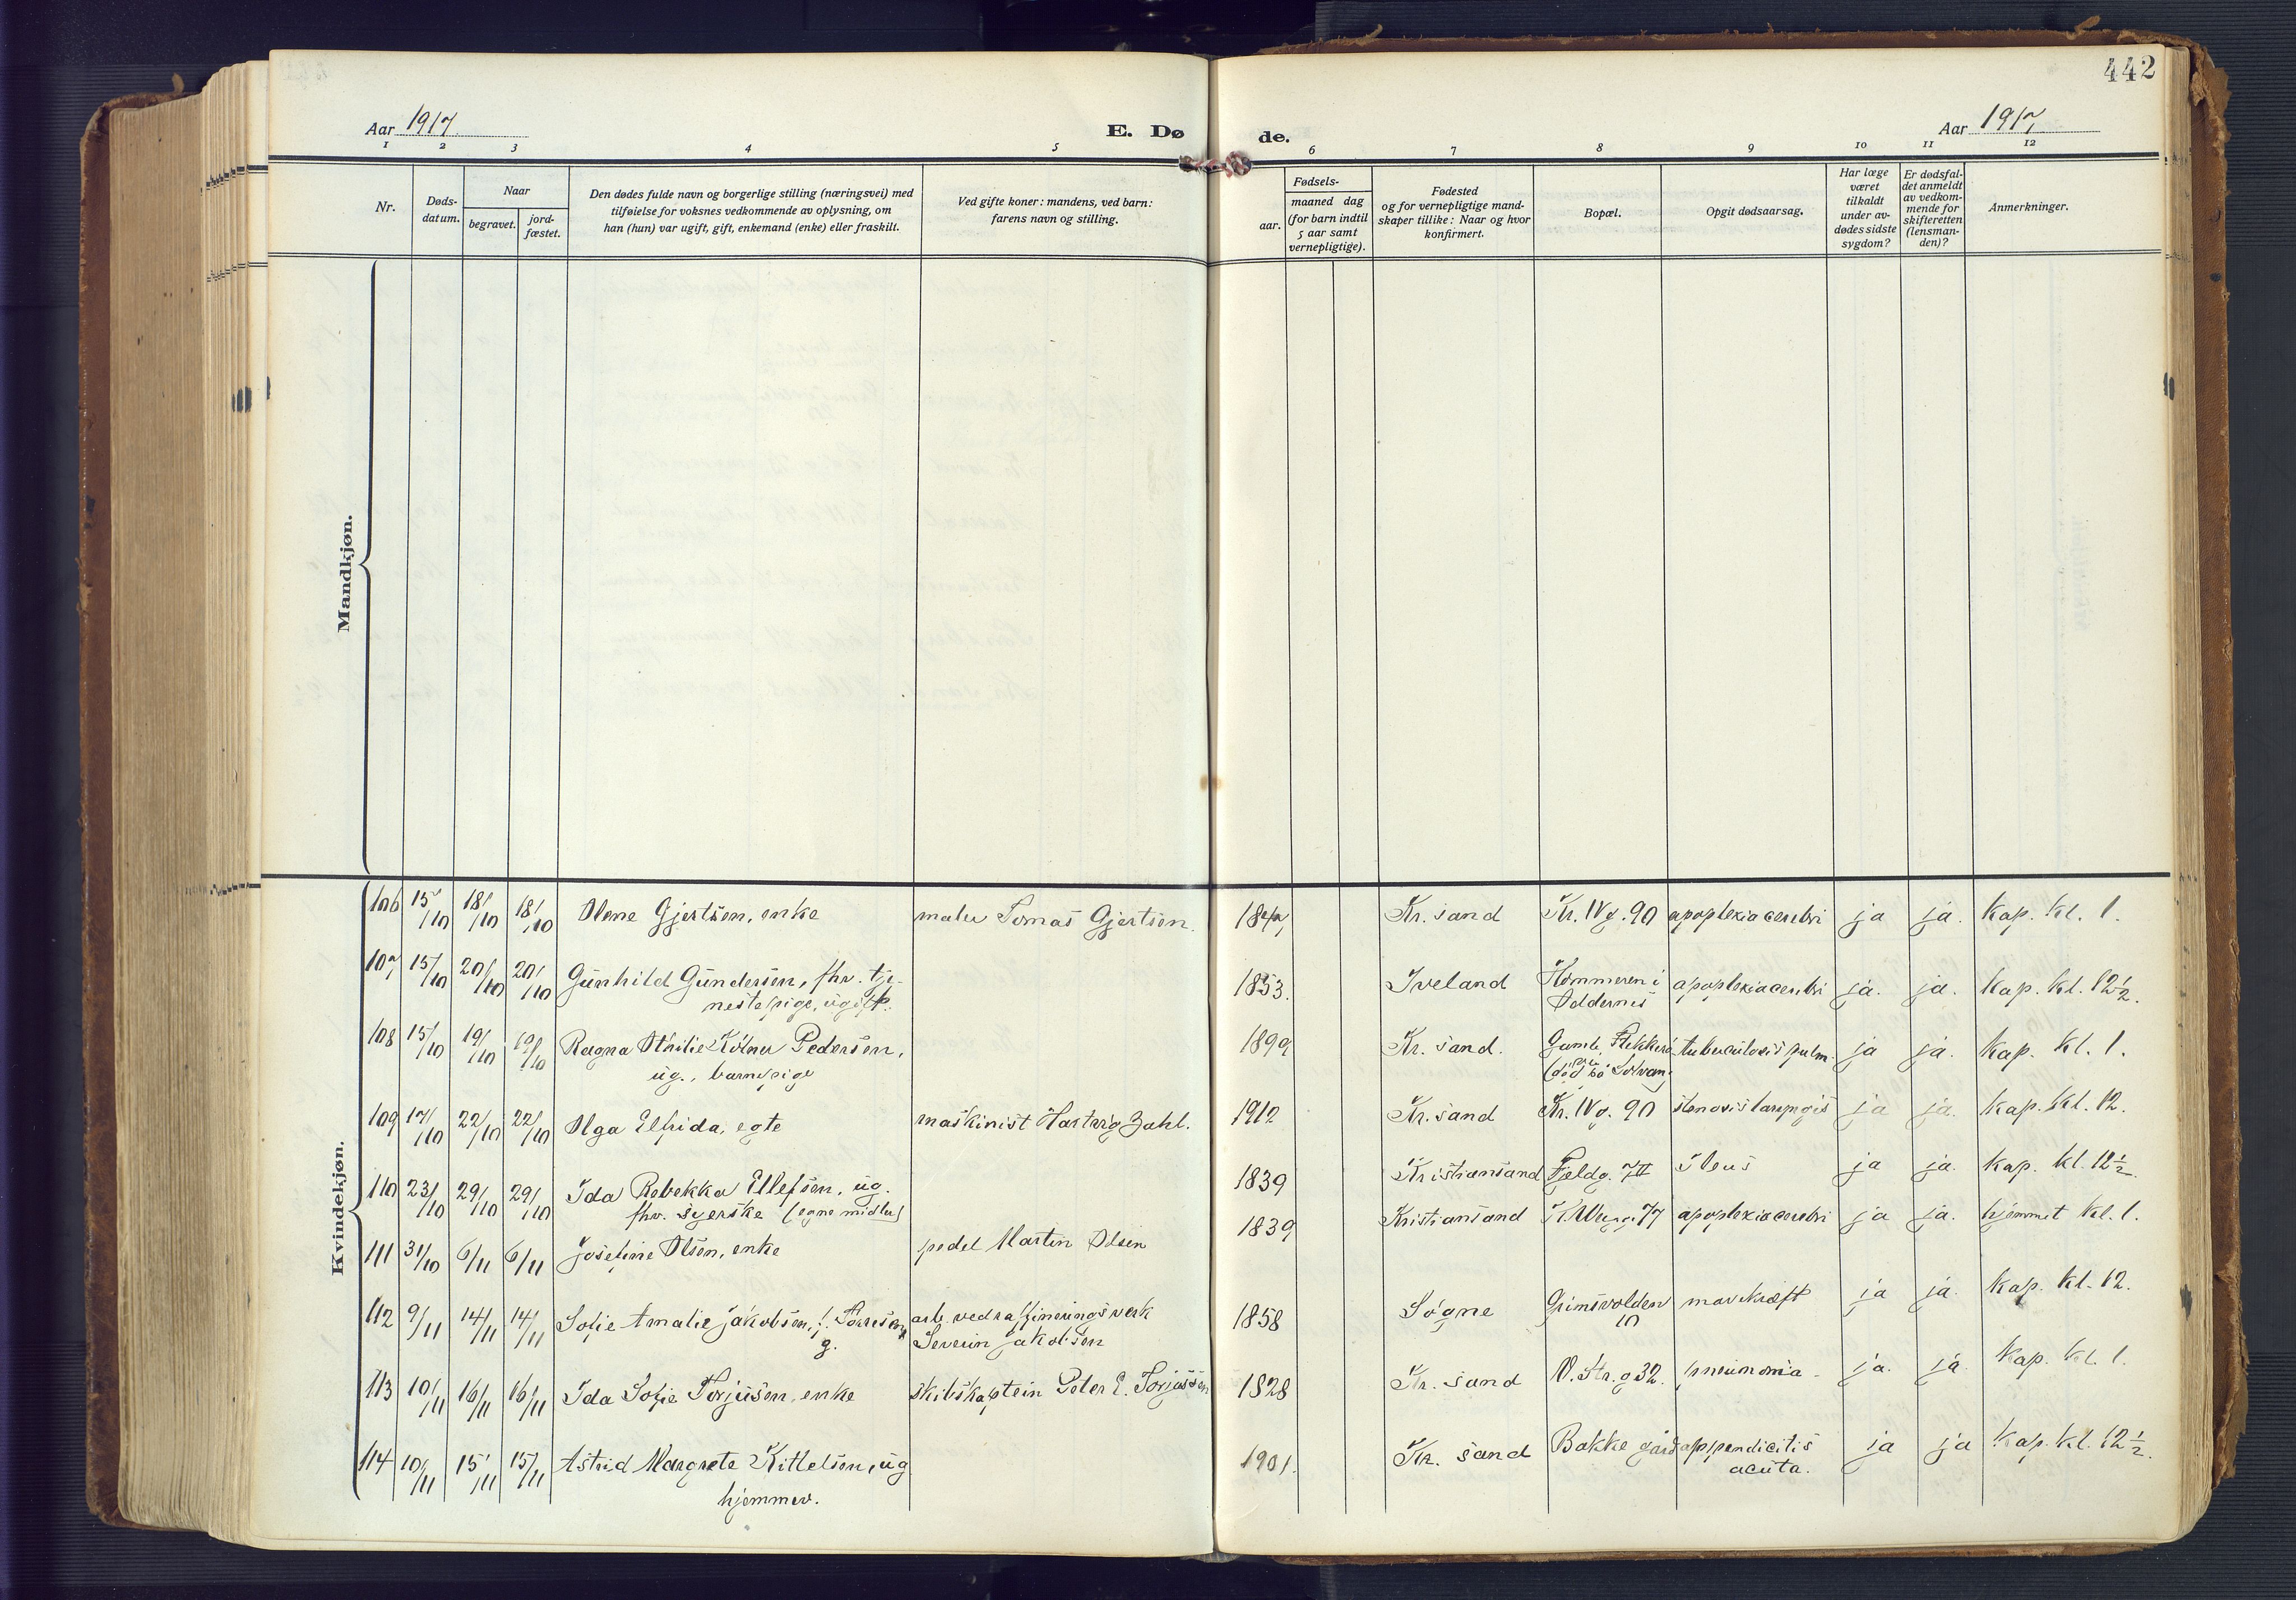 442
Aar 1917
E. Dø
de.
Aar 1917
1 2 3 4 5 6 7 8 9 10 11 12
Nr.
Døds-
datum.
Naar
begravet.
jord-
fæstet.
Den dødes fulde navn og borgerlige stilling (næringsvei) med
tilføielse for voksnes vedkommende av oplysning, om
han (hun) var ugift, gift, enkemand (enke) eller fraskilt.
Ved gifte koner: mandens, ved barn:
farens navn og stilling.
Fødsels-
aar.
maaned dag
(for barn indtil
5 aar samt
vernepligtige).
Fødested
og for vernepligtige mand-
skaper tillike: Naar og hvor
konfirmert.
Bopæl.
Opgit dødsaarsag.
Har læge
været
tilkaldt
under av-
dødes sidste
sygdom?
Er dødsfal-
det anmeldt
av vedkom-
mende for
skifteretten
(lensman-
den)?
Anmerkninger.
Mandkjøn.
Kvindekjøn.
106 15/10 18/10 18/10 Olene Gjertsen, enke maler Tomas Gjertsen. Kr.sand Kr. IV g. 90 apoplexia cerebri ja ja. Kap. kl. 1.
107 15/10 20/10 20/10 Gunhild Gundersen, fhv. tje- 1853. Iveland i apoplexia cerebri ja. ja. Kap. kl. 12½.
nestepige, ugift. Oddernes
108 15/10 19/10 19/10 Ragna Othilie Pedersen, 1899 Kr. sand. Gamle Flekkerö tuberculosis pulm. ja ja. Kap. kl. 1.
ug., barnepige (död på Solvang)
109 17/10 22/10 22/10 Olga Elfrida, egte maskinist Hartvig Zahl. 1912 Kr. sand Kr. IV g. 90 stenosis laryngis ja ja. Kap. kl. 12.
110 23/10 29/10 29/10 Ida Rebekka Ellefsen, ug. 1839 Kristiansand Fjeldg. 7 Ileus ja ja. Kap. kl. 12½.
fhv. syerske (egne midler)
111 31/10 6/11 6/11 Josefine Olsen, enke pedel Martin Olsen 1839 Kristiansand 77 apoplexia cerebri ja ja. hjemmet kl. 1.
112 9/11 14/11 14/11 Sofie Amalie Jakobsen, f. Torresen, arb. ved raffineringsverk 1858 Søgne Grimsvolden mavekræft ja ja. Kap. kl. 12.
g. Severin Jakobsen 10
113 10/11 16/11 16/11 Ida Sofie Torjusen, enke skibskaptein Peter E. Torjussen 1828 Kr. sand V. Str. g 32. pneumonia. ja. ja Kap. kl. 1.
114 10/11 15/11 15/11 Astrid Margrete Kittelsen, ug 1901. Kr. sand Bakke gård appendicitis ja ja Kap. kl. 12½.
hjemmev. acuta.